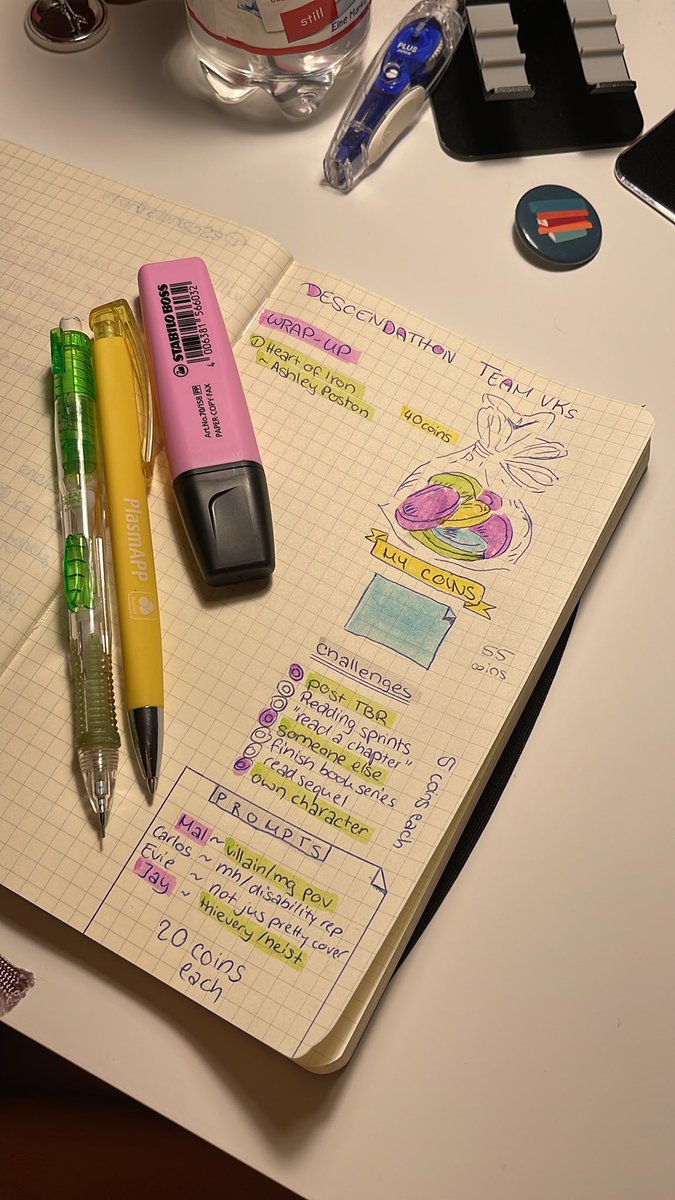 still
Eine Mark
PLUS
JAPAN
STABILO BOSS
4 006381 566032
Art.No.70/158
PAPER COPY FAX
PlasmAPP
DESCENDATHON TEAM VKS
WRAP-UP
① Heart of Iron
~ Ashley Poston
40 coins
MY COINS
55
coins
challenges
post TBR
Reading sprints
"read a chapter"
someone else
finish book series
read sequel
own character
5 coins each
PROMPTS
Mal ~ villain/mg pov
Carlos ~ mh/disability rep
Evie ~ not jus pretty cover
Jay ~ thievery/heist
20 coins
each